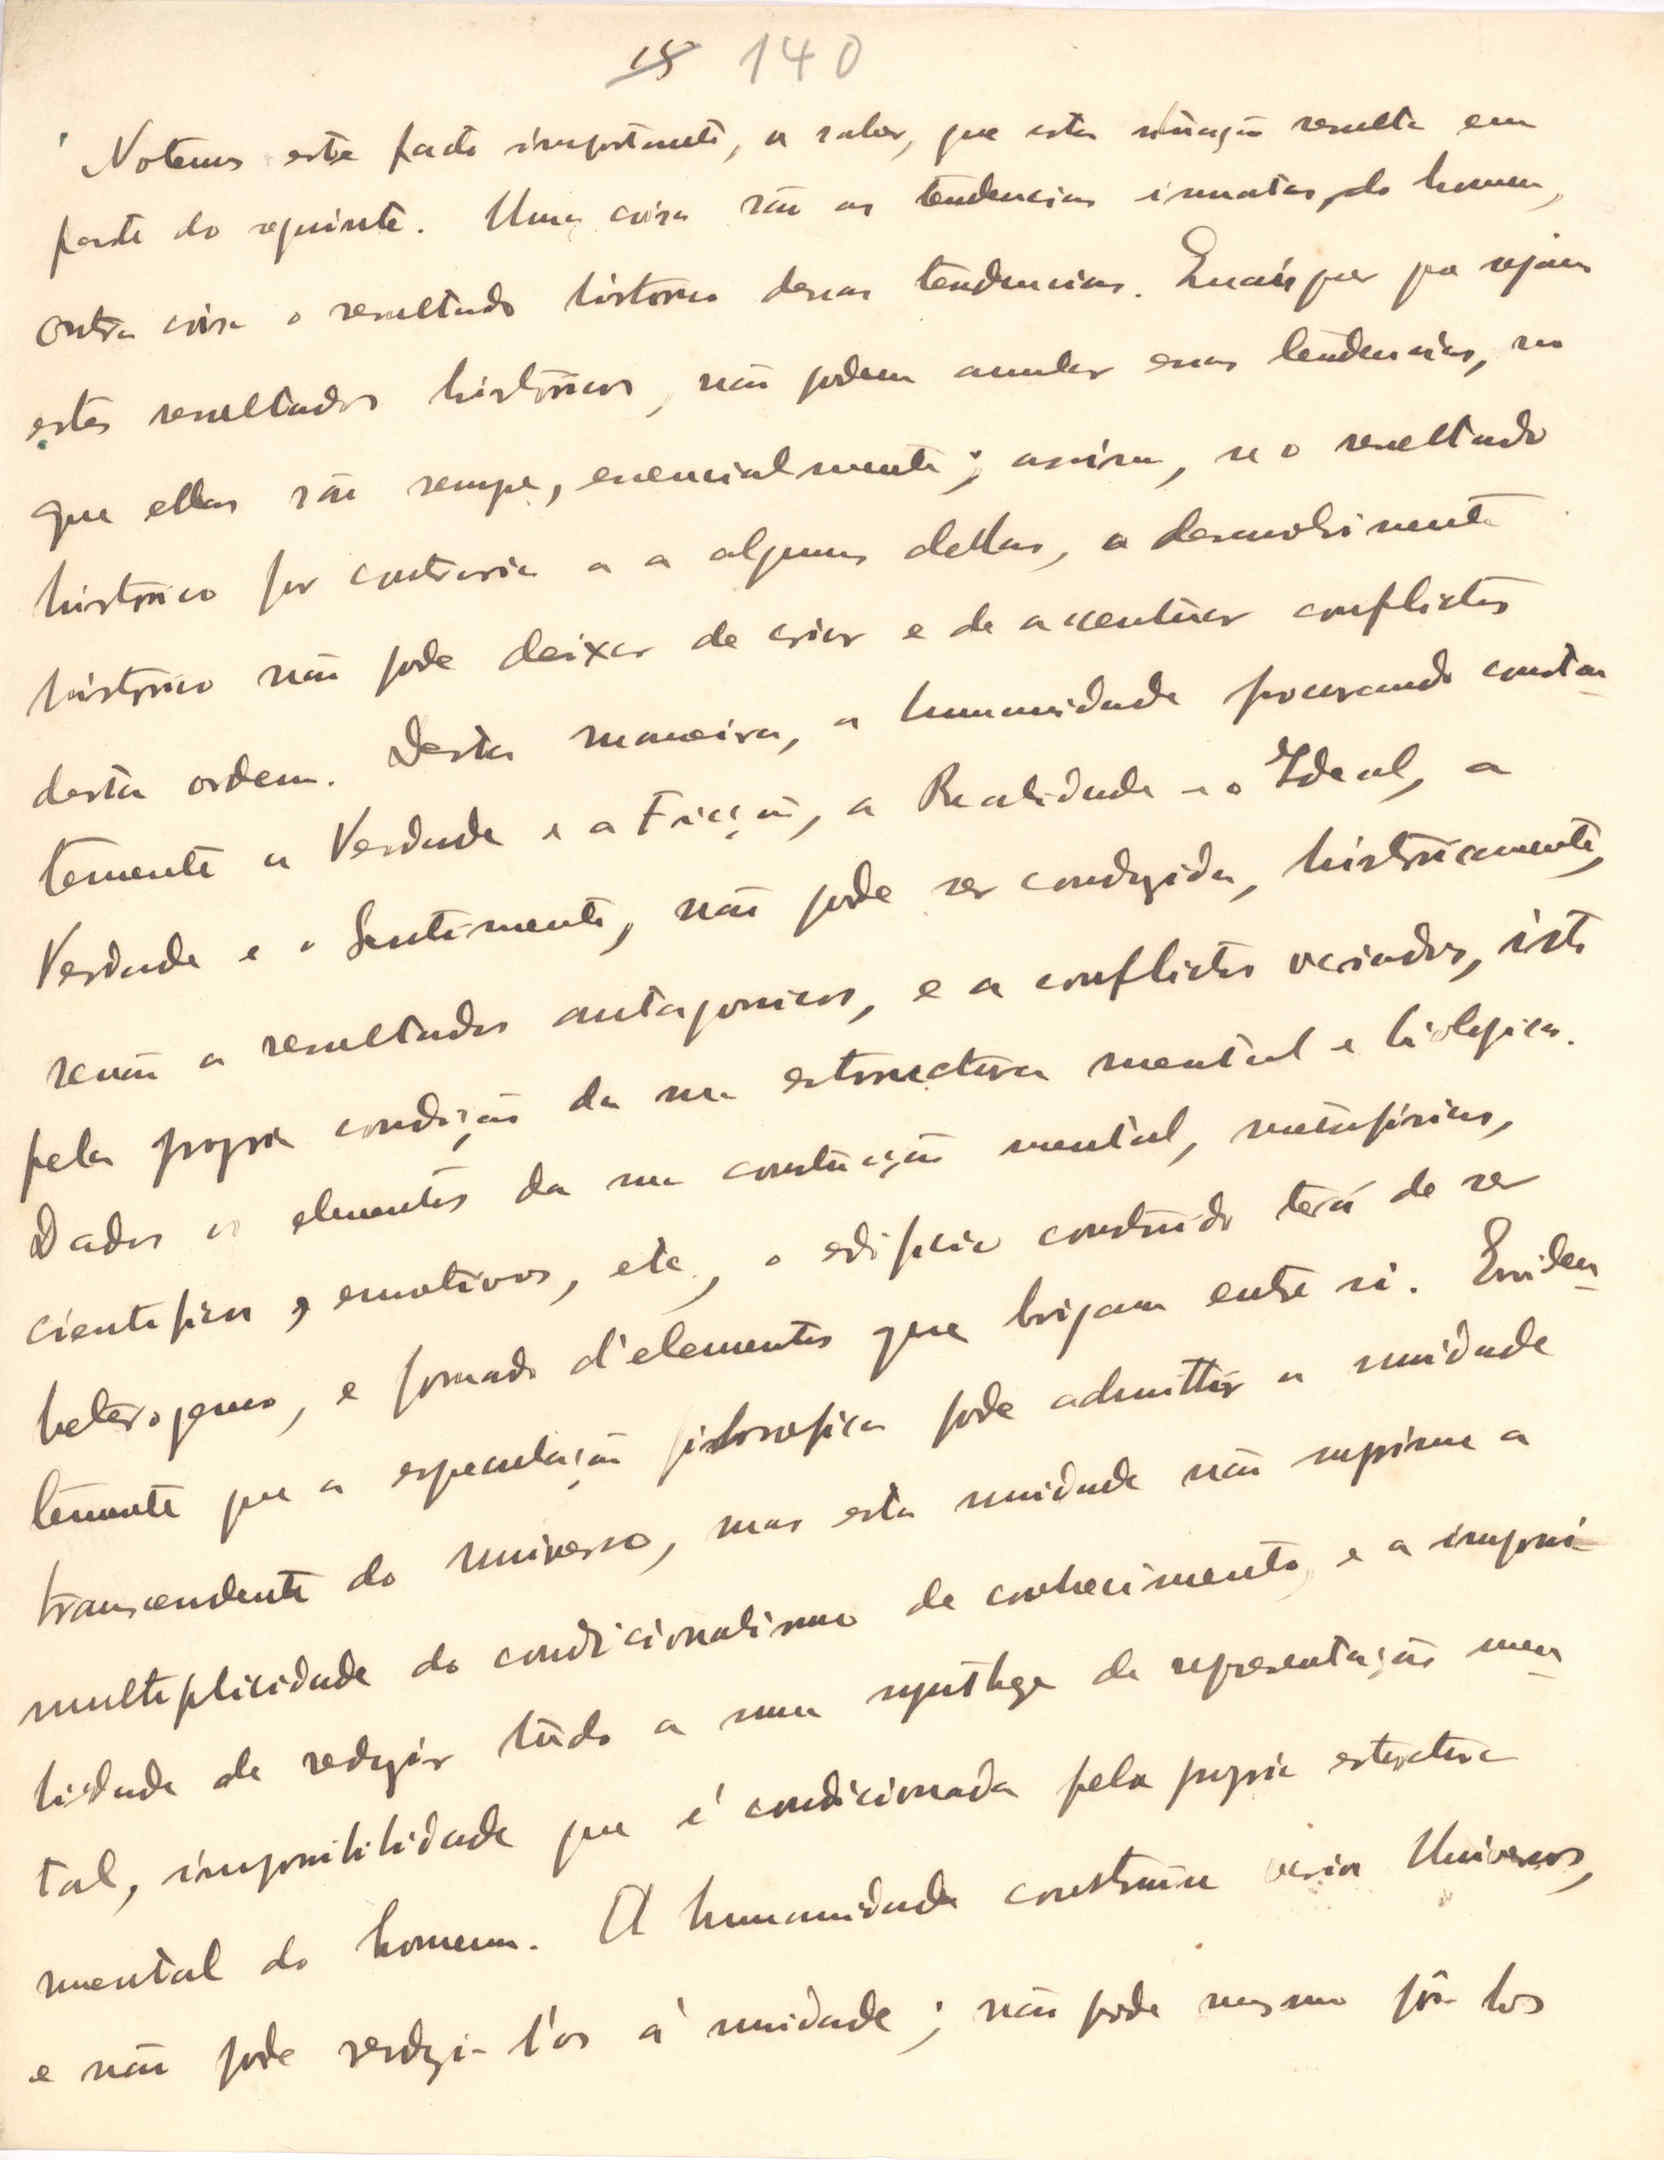 15 140
Notemos este facto importante, a saber, que esta situação resulta em
parte do seguinte. Uma coisa são as tendencias innatas do homem,
outra coisa o resultado historico dessas tendencias. Quaisquer que sejam
estes resultados historicos, não podem annular essas tendencias, no
que ellas são sempre, essencialmente; assim, se o resultado
historico for contrario a a algumas dellas, o desenvolvimento
historico não pode deixar de criar e de accentuar conflictos
desta ordem. Desta maneira, a humanidade procurando constan-
temente a Verdade e a Ficção, a Realidade e o Ideal, a
Verdade e o Sentimento, não pode ser conduzida, historicamente,
senão a resultados antagonicos, e a conflictos variados, isto
pela propria condição da sua estructura mental e biologica.
Dados os elementos da sua constituição mental, metafisicos,
cientificos, emotivos, etc, o edificio construido terá de ser
heterogeneo, e formado d'elementos que brigam entre si. Eviden-
temente que a especulação filosofica pode admittir a unidade
transcendente do universo, mas esta unidade não suprime a
multiplicidade do condicionalismo de conhecimento, e a impossi-
bilidade de reduzir tudo a uma synthese de representação men-
tal, impossibilidade que é condicionada pela propria estructura
mental do homem. A humanidade construiu varios Universos,
e não pode reduzi-l'os á unidade; não pode mesmo pô-los